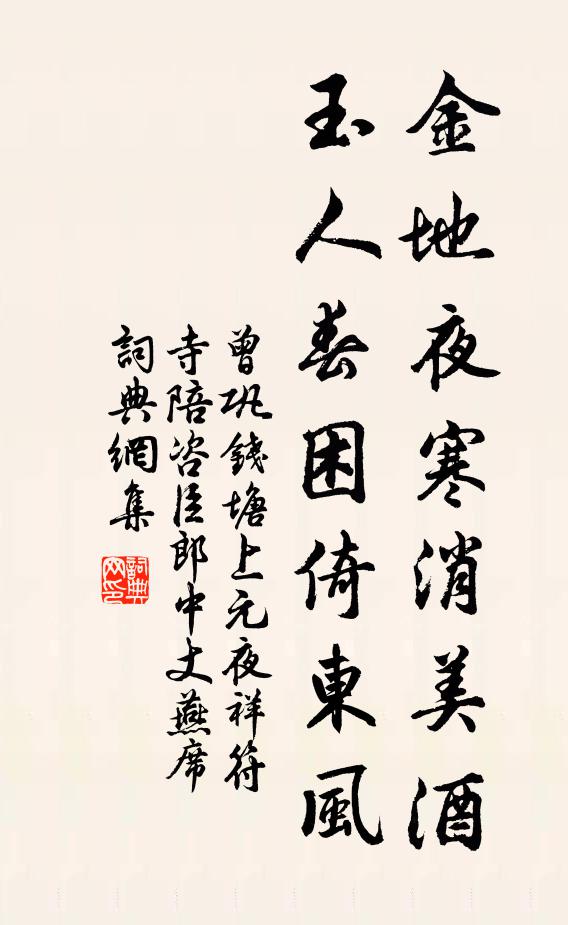 金地夜寒消美酒
玉人春困倚東風
曾巩錢塘上元夜祥符
寺陪咨臣郎中丈燕席
詞典網集
詞典网印